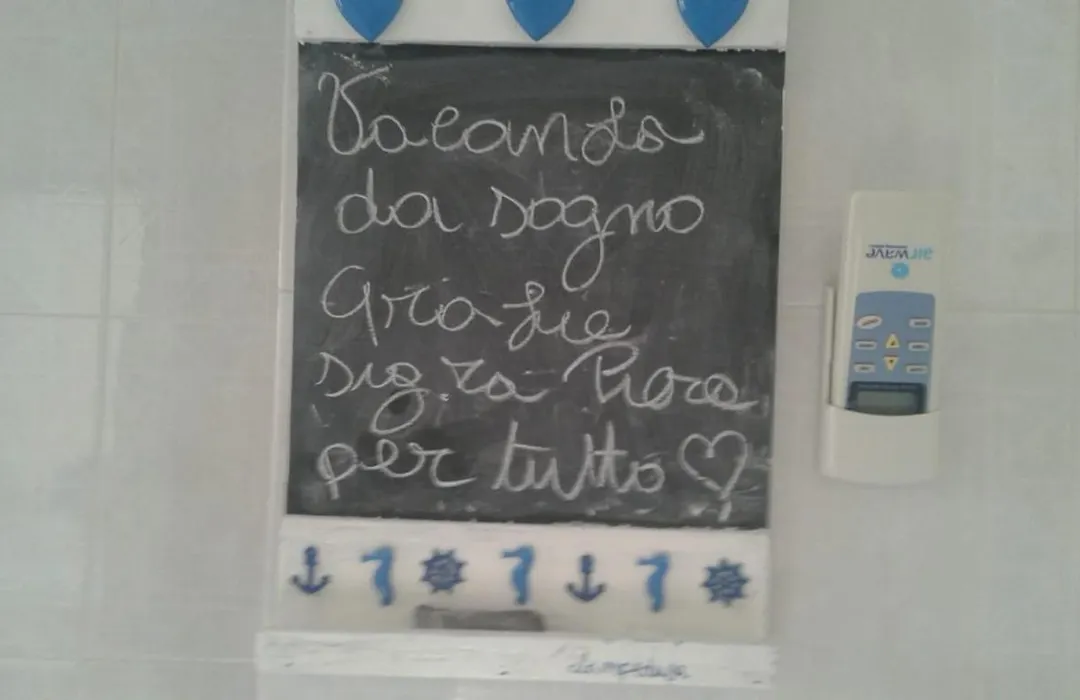 Vacanda
da sogno
Grazie
sig.ra Piera
per tutto
airwave
Lampedusa